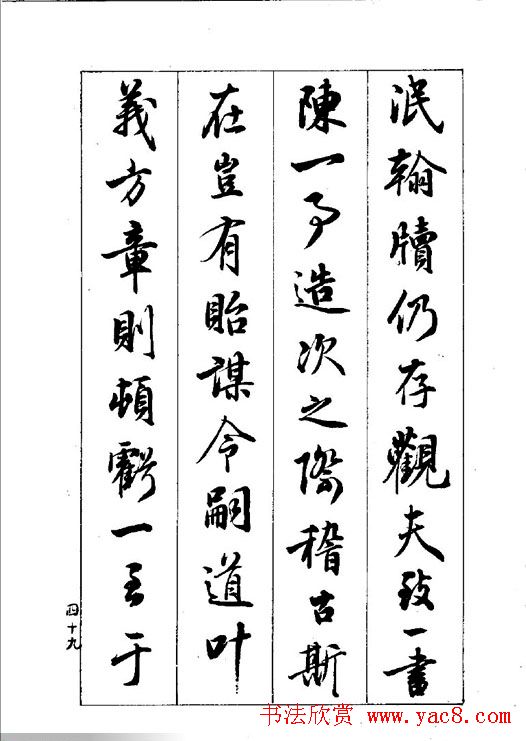 泯翰牘仍存觀夫致一書
陳一事造次之際稽古斯
在豈有貽謀令嗣道叶
義方章則頓虧一至于
四十九
书法欣赏 www.yac8.com